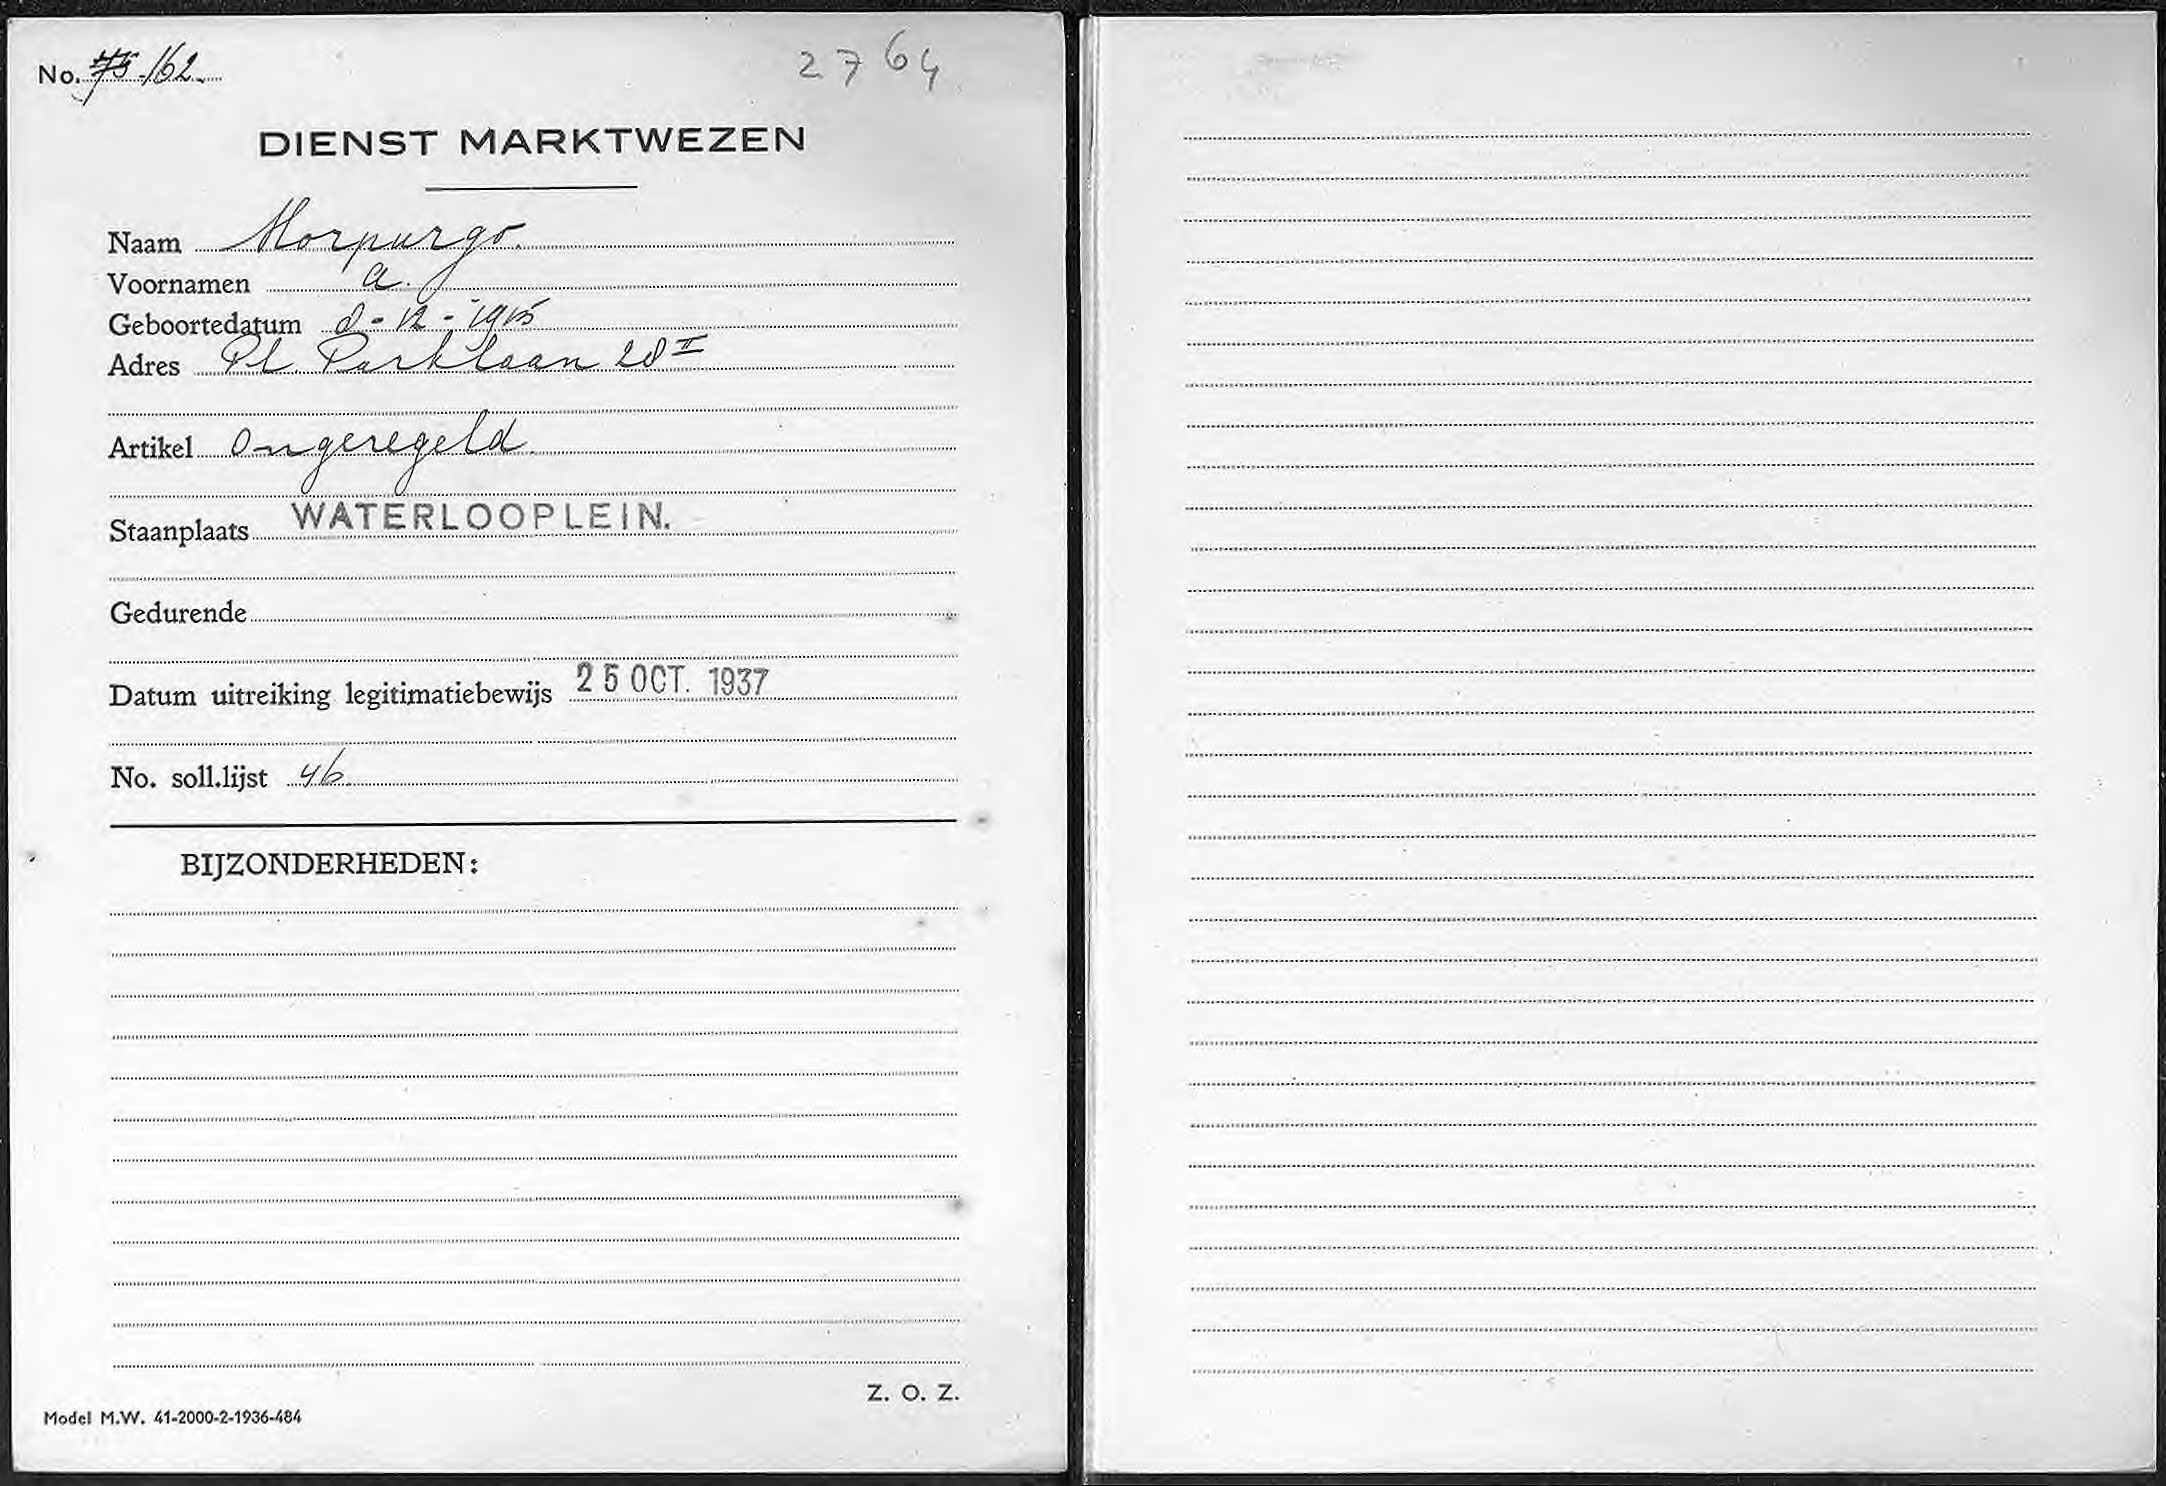 No. 75/62.
2764
DIENST MARKTWEZEN
Naam Morpurgo.
Voornamen A.
Geboortedatum 8-12-1915
Adres Pl. Parklaan 28 II
Artikel Ongeregeld.
Staanplaats WATERLOOPLEIN.
Gedurende
Datum uitreiking legitimatiebewijs 25 OCT. 1937
No. soll.lijst 46
BIJZONDERHEDEN:
Z. O. Z.
Model M.W. 41-2000-2-1936-484